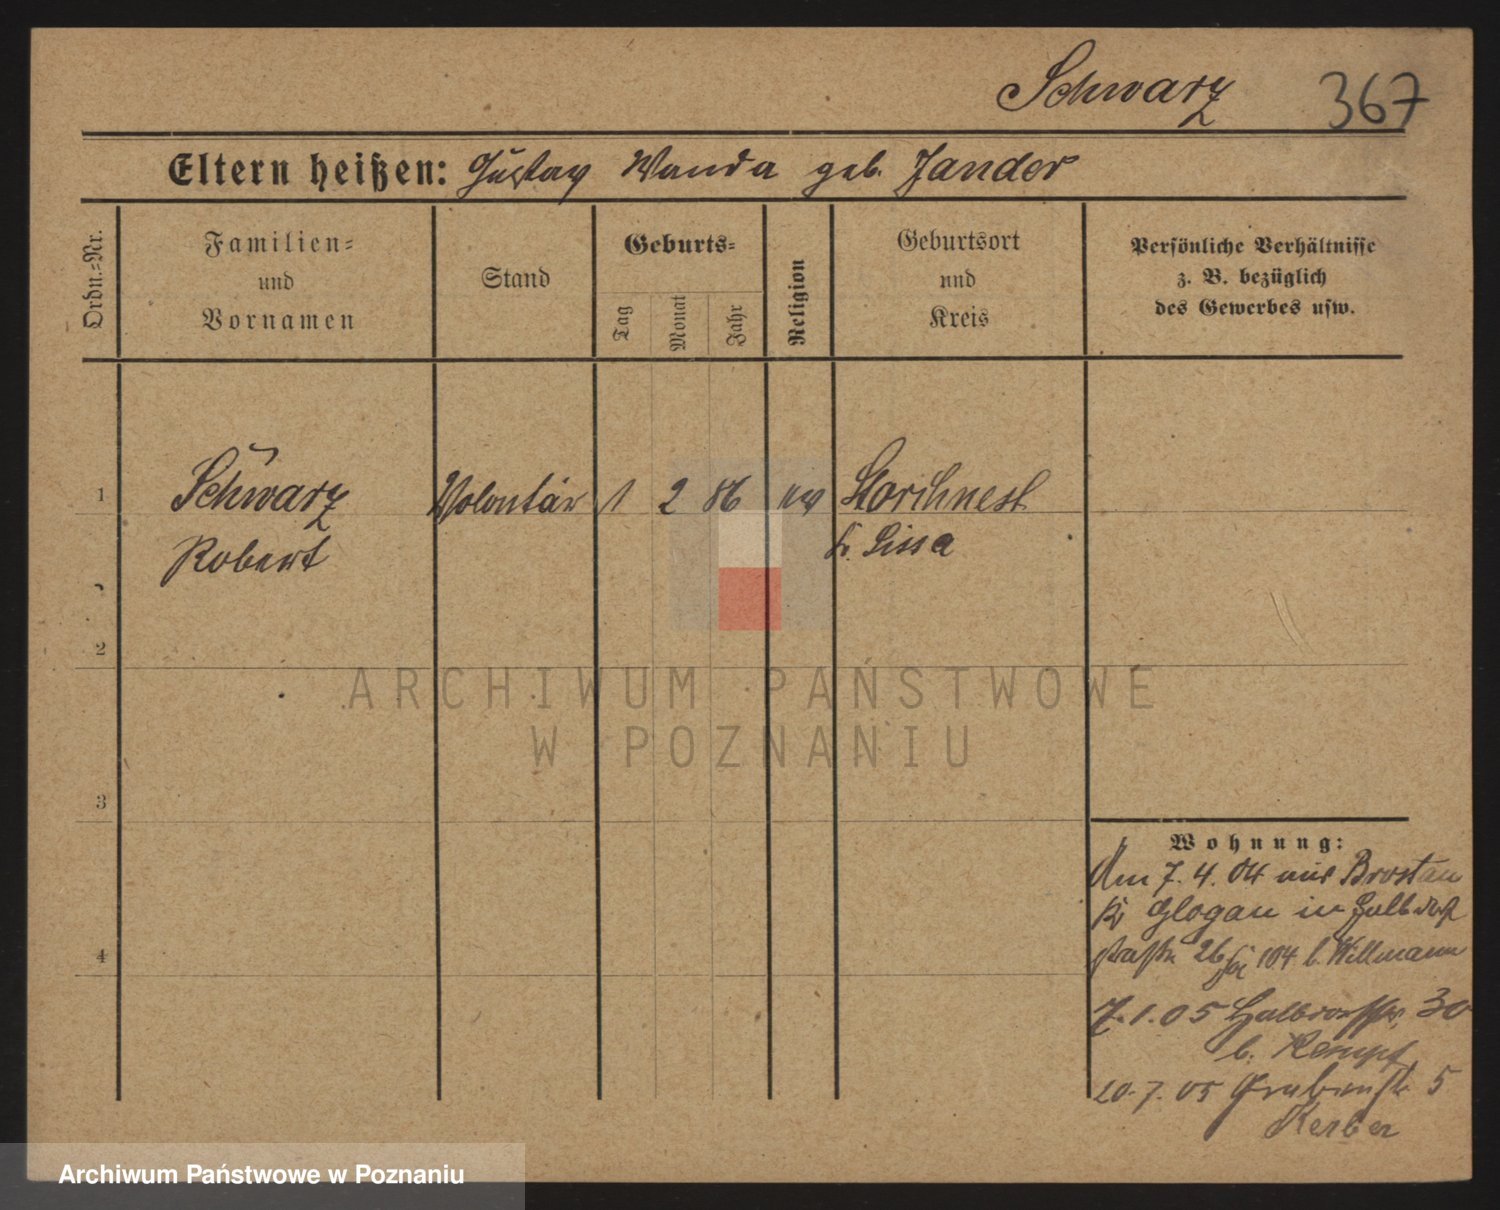 Schwarz 367
Eltern heißen: Gustav Wanda geb. Jander
Ordn.-Nr.
Familien-
und
Vornamen
Stand
Geburts-
Tag
Monat
Jahr
Religion
Geburtsort
und
Kreis
Persönliche Verhältnisse
z. B. bezüglich
des Gewerbes usw.
1 Schwarz Volontär 1 2 86 ev Storchnest
Robert Kr. Lissa
2
3
4
Wohnung:
Am 7. 4. 04 aus Brostau
Kr Glogau in Halbdorf
straße 26 104 b. Willmann
7. 1. 05 Halbdorfstr. 30
b. Kempf
20. 7. 05 Grabenstr. 5
Kerber
ARCHIWUM PAŃSTWOWE
W POZNANIU
Archiwum Państwowe w Poznaniu